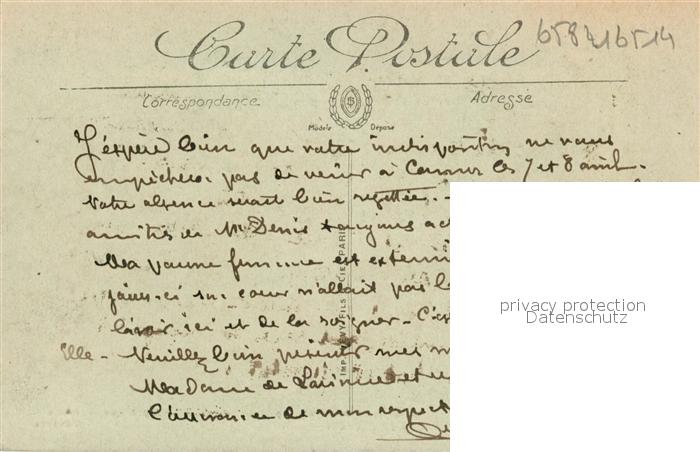 Carte Postale
658216514
Correspondance
Adresse
Modèle Déposé
J'espère bien que votre indisposition ne vous
empêchera pas de venir à les 7 et 8 avril.
Votre absence serait bien regrettée. -
amitiés de Mr Denis toujours
Ma pauvre femme est
jours-ci son cœur n'allait pas
ici et de la soigner - C'est
Elle - Veuillez bien présenter mes
Madame de et
l'assurance de mon respect
IMP. LEVY FILS ET CIE PARIS
privacy protection
Datenschutz